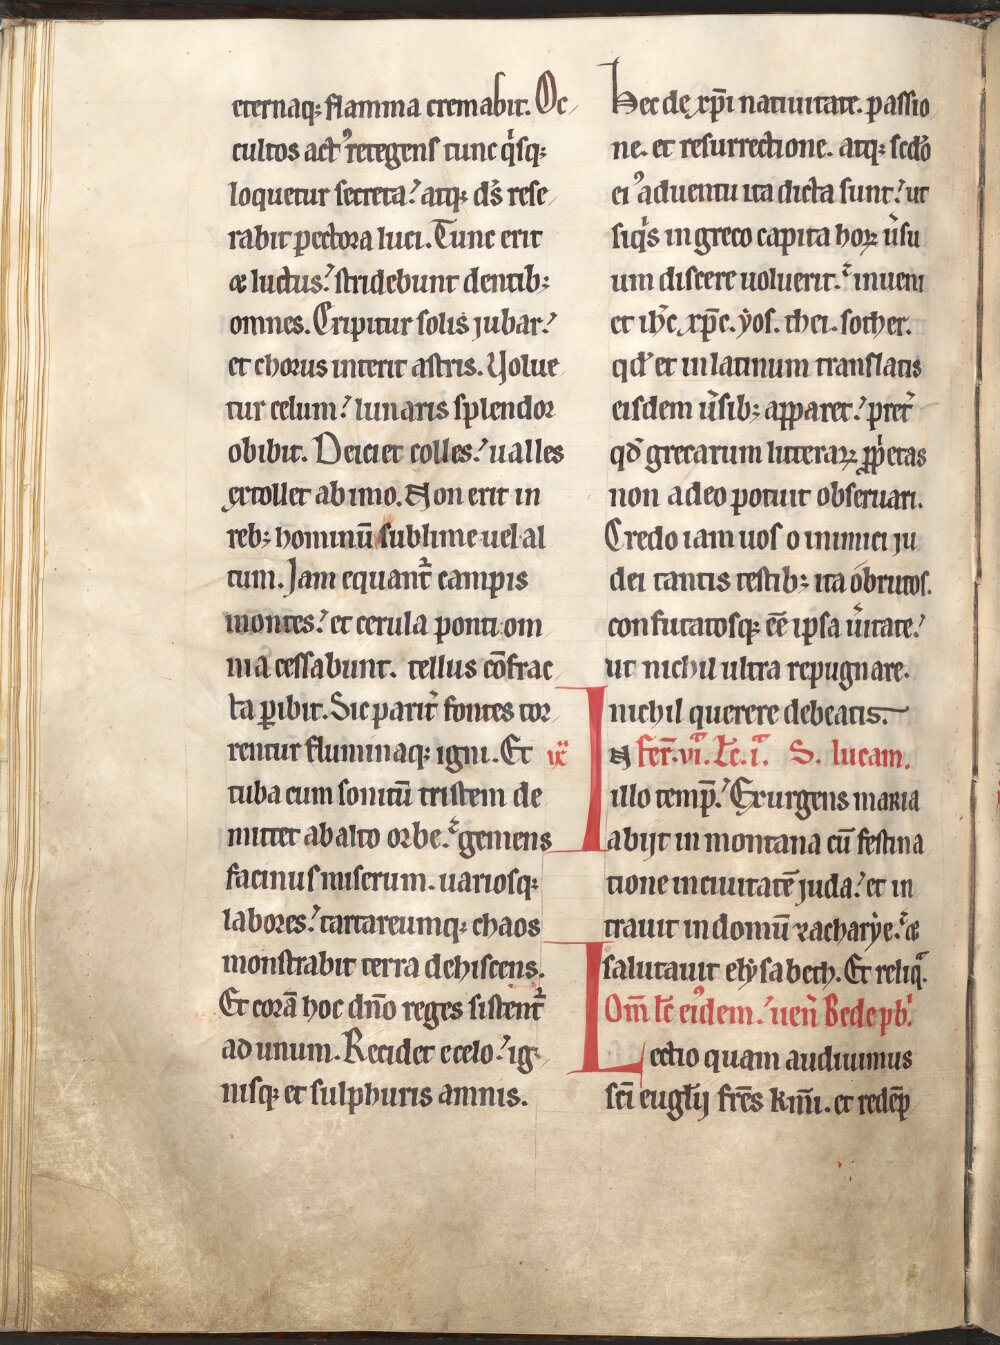 eternaq; flamma cremabit. Oc
cultos act᾽ retegens tunc qͥsq;
loquetur secreta.᾽ atq; dn̄s rese
rabit pectora luci. Tunc erit
æ luctus.᾽ stridebunt dentib;
omnes. Eripitur solis jubar.᾽
et chorus interit astris. Uolue
tur celum.᾽ lunaris splendor
obibit. Deiciet colles.᾽ ualles
extollet ab imo. Non erit in
reb; hominū sublime uel al
tum. Jam equant᷑ campis
montes.᾽ et cerula ponti om
nia cessabunt. tellus cōfrac
ta ꝑibit. Sic parit᷑ fontes tor
rentur fluminaq; igni. Et ix
tuba cum sonitū tristem de
mittet ab alto orbe.᾽ gemens
facinus miserum. uariosq;
labores.᾽ tartareumq; chaos
monstrabit terra dehiscens.
Et corā hoc dn̄o reges sistent᷑
ad unum. Recidet e celo.᾽ ig
nisq; et sulphuris amnis.
Hec de xp̄i natiuitate. passio
ne. et resurrectione. atq; scd̄o
ei᾽ aduentu ita dicta sunt.᾽ ut
siqͥs in greco capita hoꝝ u̾su
um discere uoluerit.᾽ inueni
et ih̄c xp̄c. ẏos. thei. sother.
qd̄ et in latinum translatis
eisdem u̾sib; apparet.᾽ pret᷑
qd̄ grecarum litteraꝝ ꝓprͥetas
non adeo potuit obseruari.
Credo iam uos o inimici ju
dei tantis testib; ita obrutos.
confutatosq; eē ipsa u̾itate.᾽
ut nichil ultra repugnare.
nichil querere debeatis.
IN fer̄. vi. Lc̄. i.ᵃ S. lucam.
illo temp̄.᾽ Exurgens maria
abijt in montana cū festina
tione in ciuitatē juda.᾽ et in
trauit in domū zacharẏe.᾽ æ
salutauit elẏsabeth. Et reliqͣ.
Om̄l̄ eiᷣdem.᾽ uen̄ Bede pb̾ͥ.
Lectio quam audiuimus
sc̄i eugl̄ij fr̄es kmͥ̄. et redēp